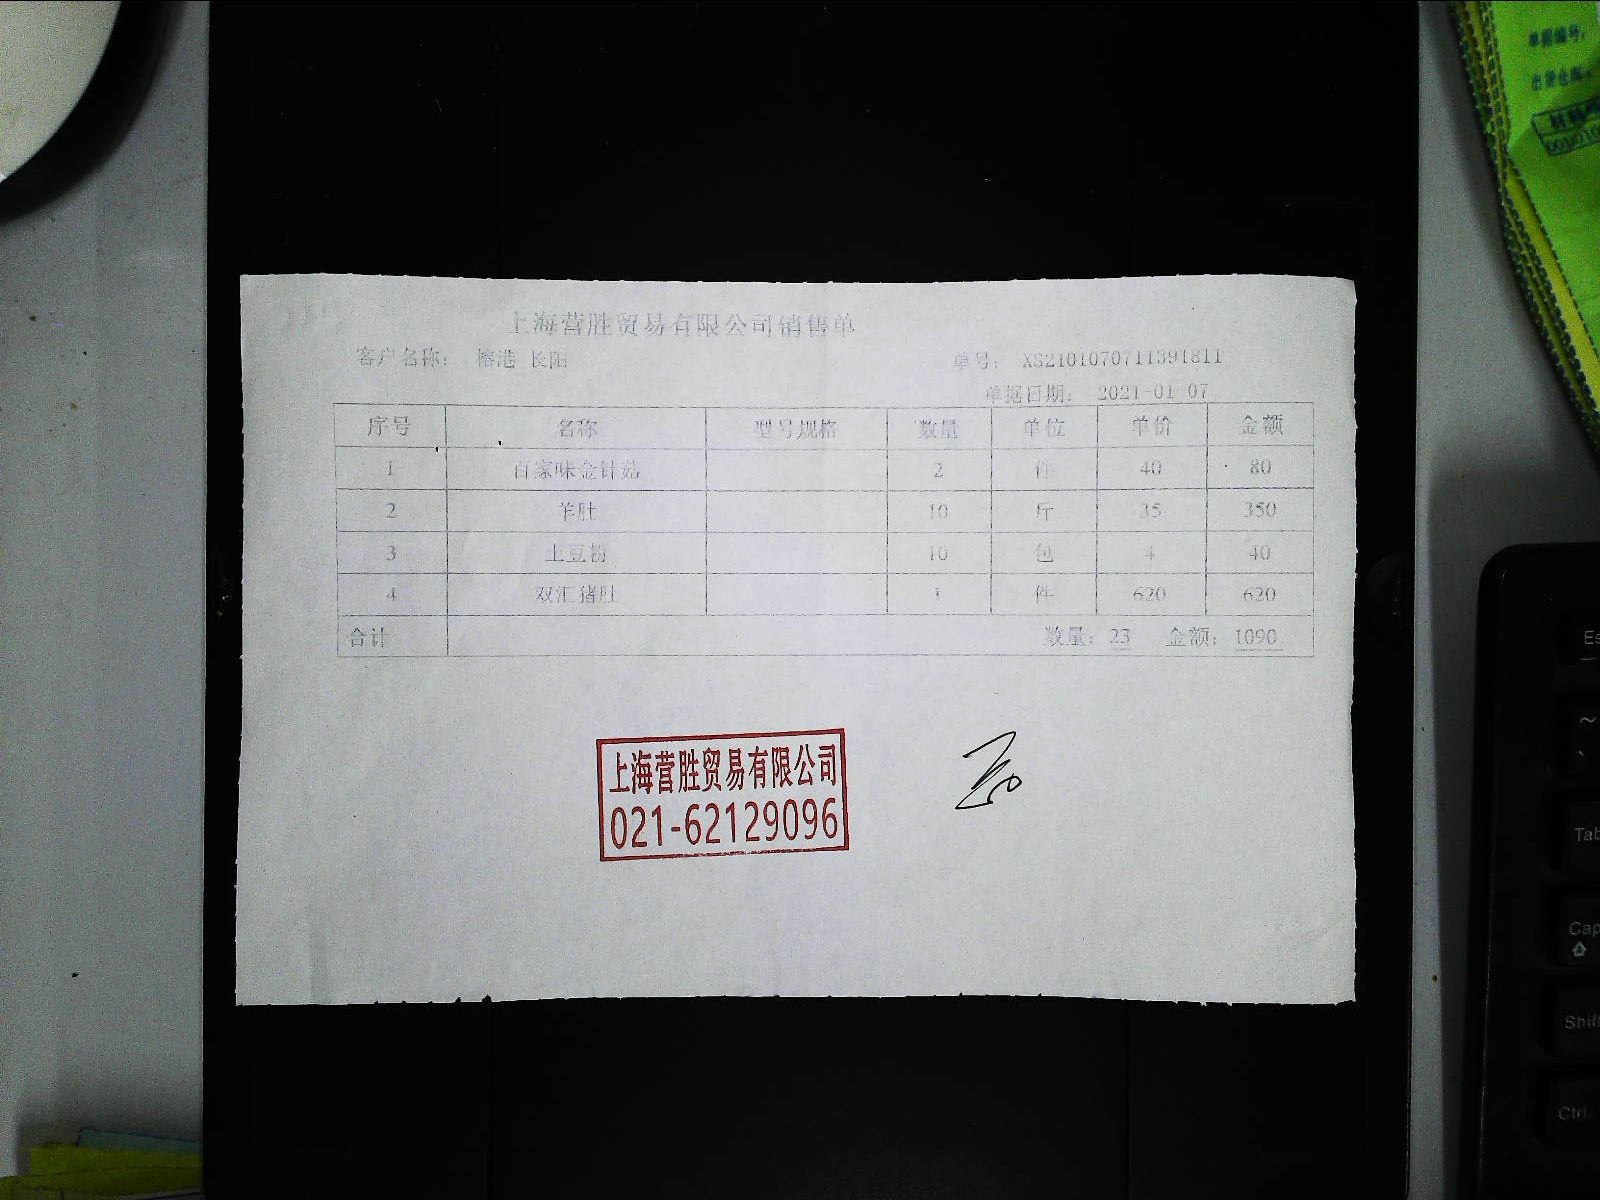 上海营胜贸易有限公司销售单
客户名称： 榕港 长阳
单号： XS2101070711391811
单据日期： 2021-01-07
序号 名称 型号规格 数量 单位 单价 金额
1 百家味金针菇 2 件 40 80
2 羊肚 10 斤 35 350
3 土豆粉 10 包 4 40
4 双汇猪肚 1 件 620 620
合计 数量：23 金额：1090
上海营胜贸易有限公司
021-62129096
单据编号：
出货仓库：
Tab
Shift
Ctrl